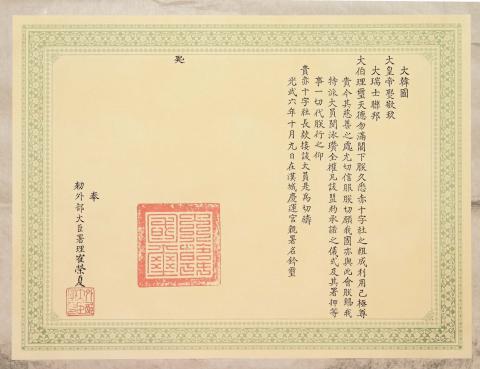 大韓國
大皇帝熙敬致
大瑞士聯邦
大伯理璽天德勿滿閣下朕久悉赤十字社之組成利用已極尊
貴今其慈善之處尤切信服朕切願我國亦與此會朕賜我
特派大員閔泳瓚全權凡該盟約承諾之儀式及其署押等
事一切代朕行之仰
貴赤十字社長欵接該大員是爲切禱
光武六年十月九日在漢城慶運宮親署名鈐璽
熙
奉
勅外部大臣署理崔榮夏